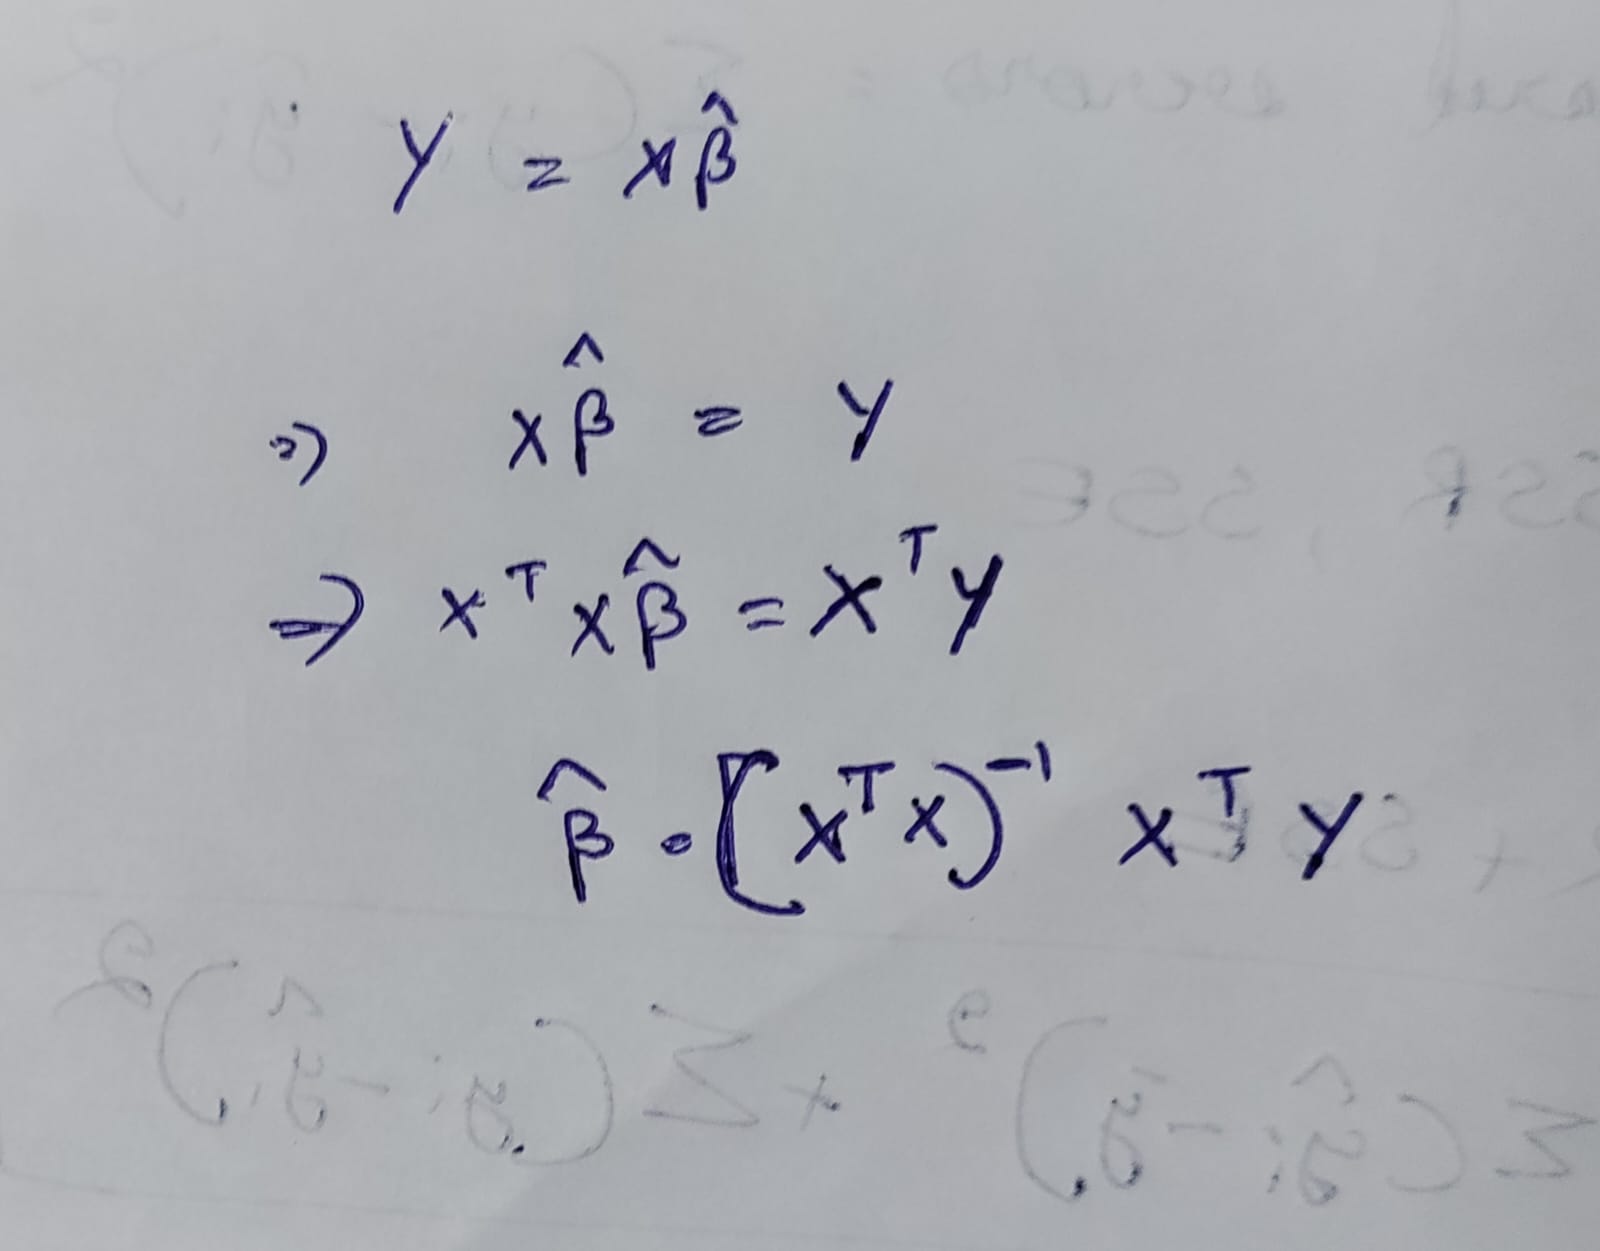 Y = Xβ̂
⇒ Xβ̂ = Y
⇒ XᵀXβ̂ = XᵀY
β̂ = (XᵀX)⁻¹ XᵀY